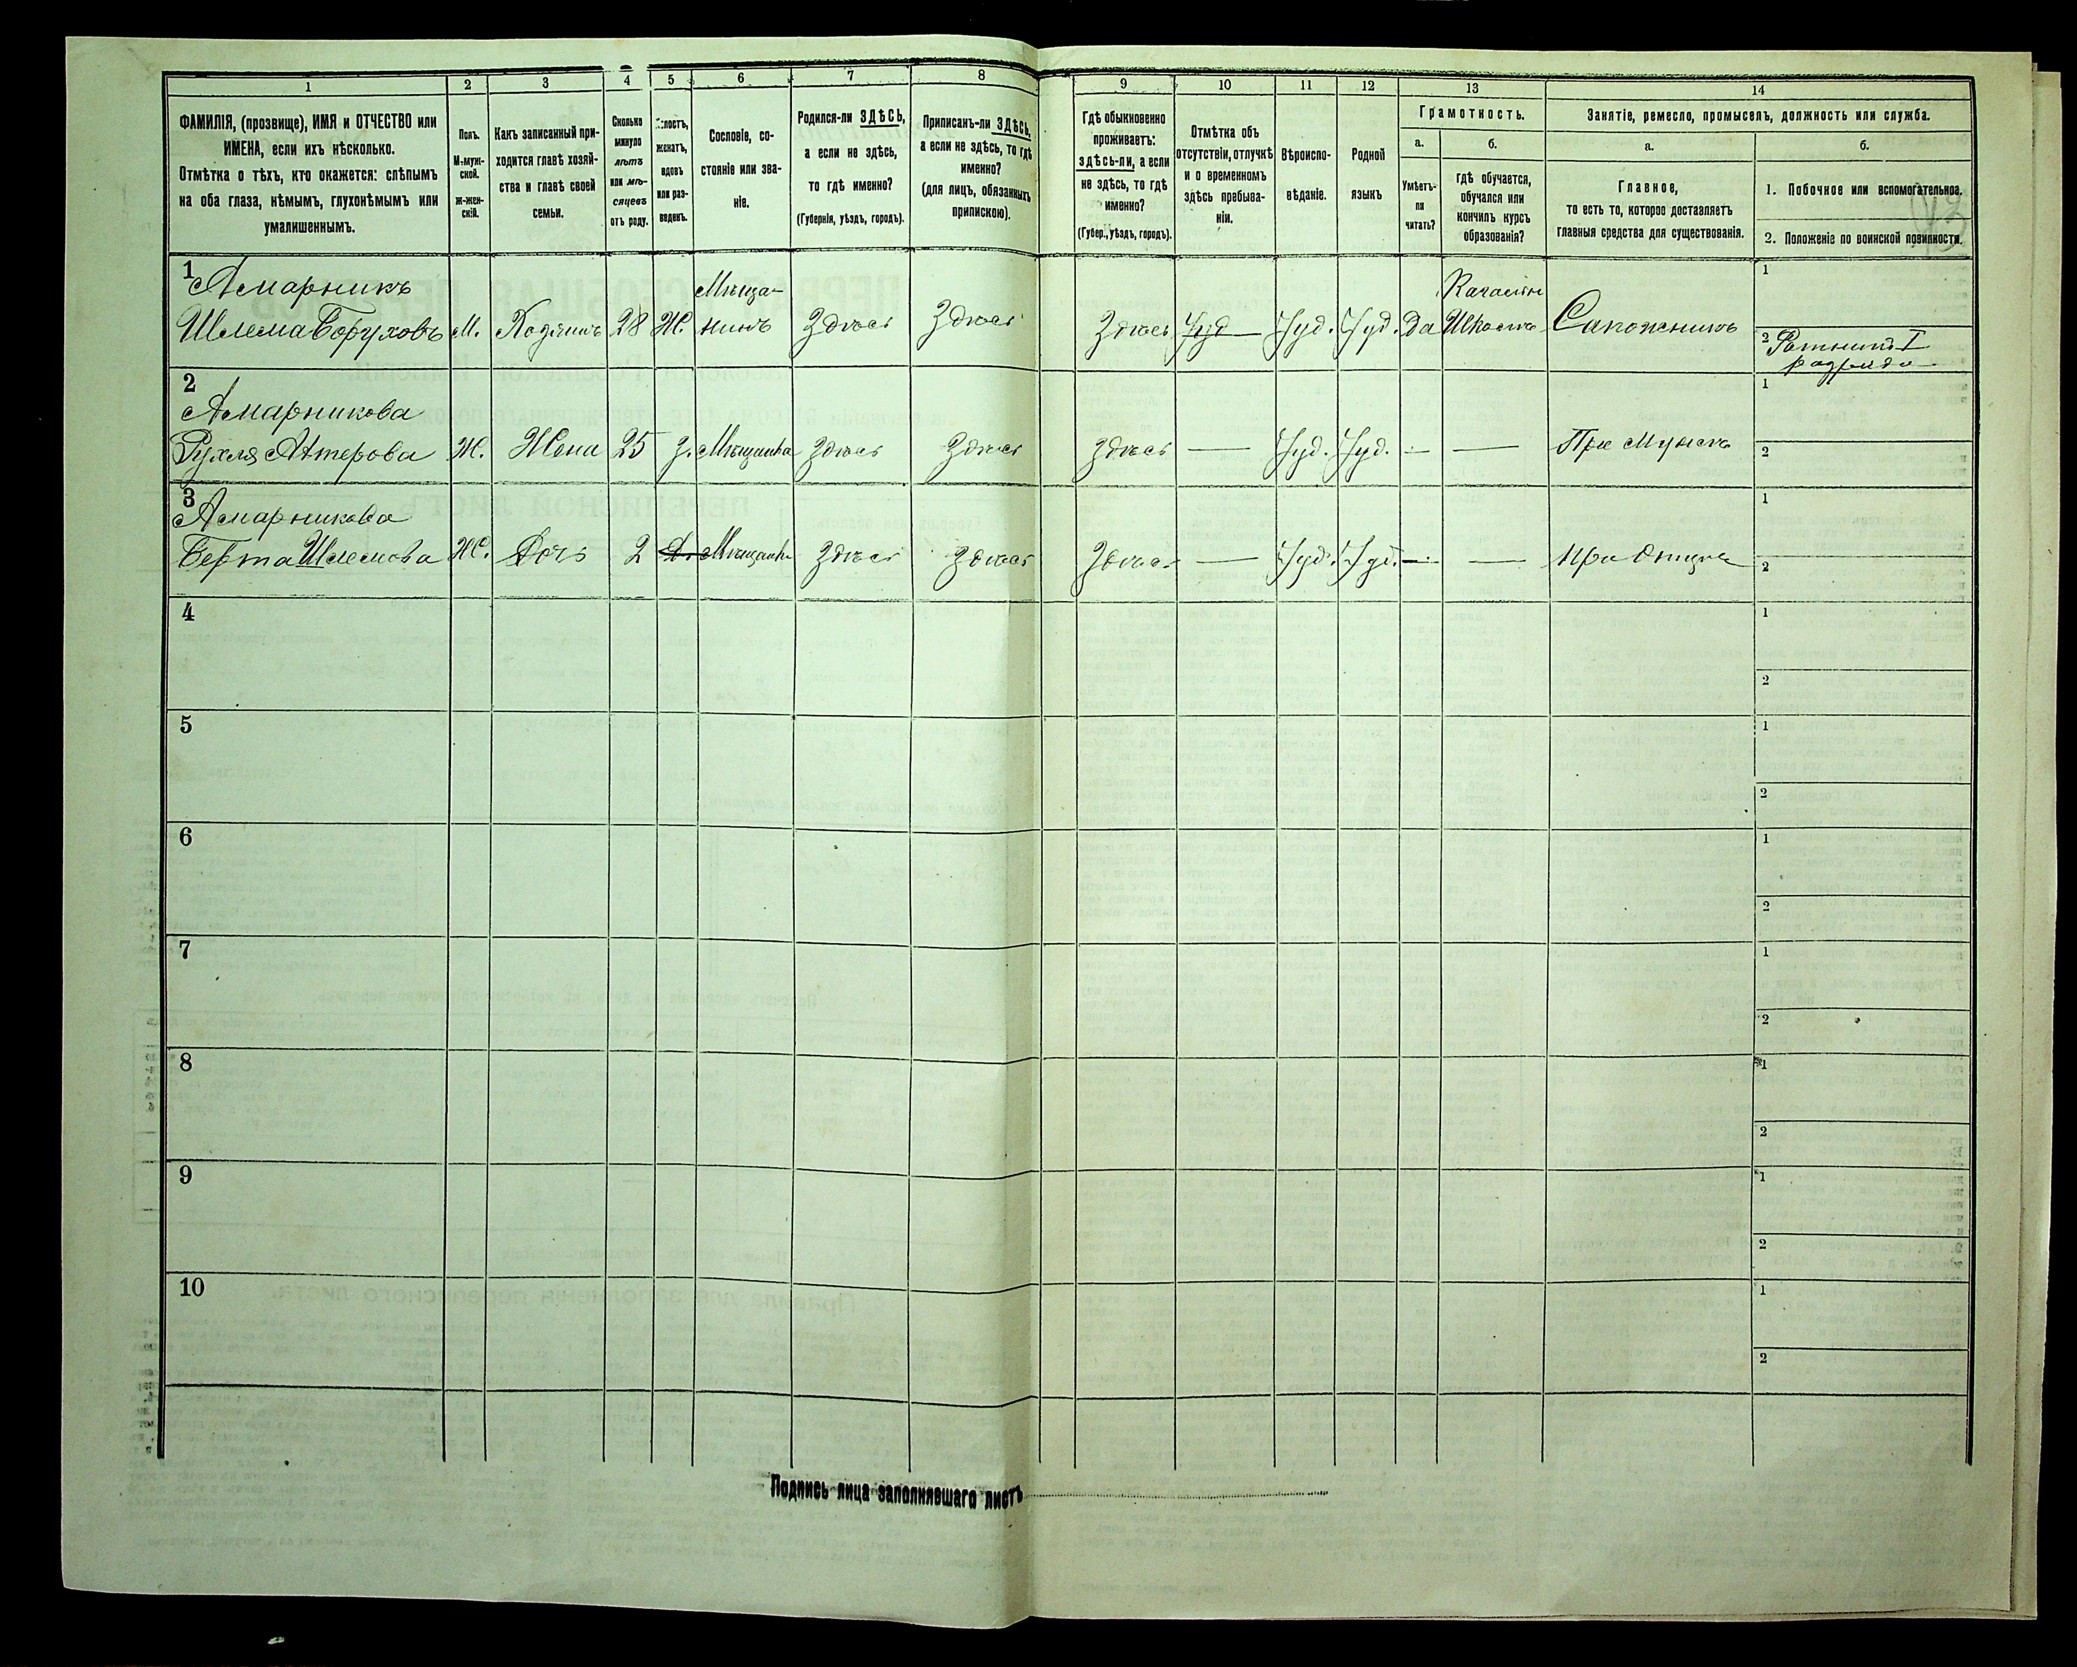 1 2 3 4 5 6 7 8 9 10 11 12 13 14
ФАМИЛІЯ, (прозвище), ИМЯ и ОТЧЕСТВО или
ИМЕНА, если ихъ нѣсколько.
Отмѣтка о тѣхъ, кто окажется: слѣпымъ
на оба глаза, нѣмымъ, глухонѣмымъ или
умалишеннымъ.
Полъ.
М-муж-
ской.
ж-жен-
скій.
Какъ записанный при-
ходится главѣ хозяй-
ства и главѣ своей
семьи.
Сколько
минуло
лѣтъ
или мѣ-
сяцевъ
отъ роду.
женатъ,
вдовъ
или раз-
веденъ.
Сословіе, со-
стояніе или зва-
ніе.
Родился-ли ЗДѢСЬ,
а если не здѣсь,
то гдѣ именно?
(Губернія, уѣздъ, городъ).
Приписанъ-ли ЗДѢСЬ,
а если не здѣсь, то гдѣ
именно?
(для лицъ, обязанныхъ
припискою).
Гдѣ обыкновенно
проживаетъ:
здѣсь-ли, а если
не здѣсь, то гдѣ
именно?
(Губер., уѣздъ, городъ).
Отмѣтка объ
отсутствіи, отлучкѣ
и о временномъ
здѣсь пребыва-
ніи.
Вѣроиспо-
вѣданіе.
Родной
языкъ
Грамотность.
а.
Умѣетъ-
ли
читать?
б.
гдѣ обучается,
обучался или
кончилъ курсъ
образованія?
Занятіе, ремесло, промыселъ, должность или служба.
а.
Главное,
то есть то, которое доставляетъ
главныя средства для существованія.
б.
1. Побочное или вспомогательное.
2. Положеніе по воинской повинности.
1
Асмарникъ
Шлема Боруховъ М. Хозяинъ 28 Ж. Мѣща-
нинъ Здѣсь Здѣсь Здѣсь Іуд. Іуд. Да Сапожникъ
1
2 Ратникъ I
разряда
2
Асмарникова
Рухля Ж. Жена 25 З. Мѣщанка Здѣсь Здѣсь Здѣсь — Іуд. Іуд. — — При мужѣ
1
2
3
Асмарникова
Берта Шлемова Ж. Дочь 2 Мѣщанка Здѣсь Здѣсь Здѣсь — Іуд. Іуд. — — При отцѣ
1
2
4
1
2
5
1
2
6
1
2
7
1
2
8
1
2
9
1
2
10
1
2
Подпись лица заполнявшаго листъ